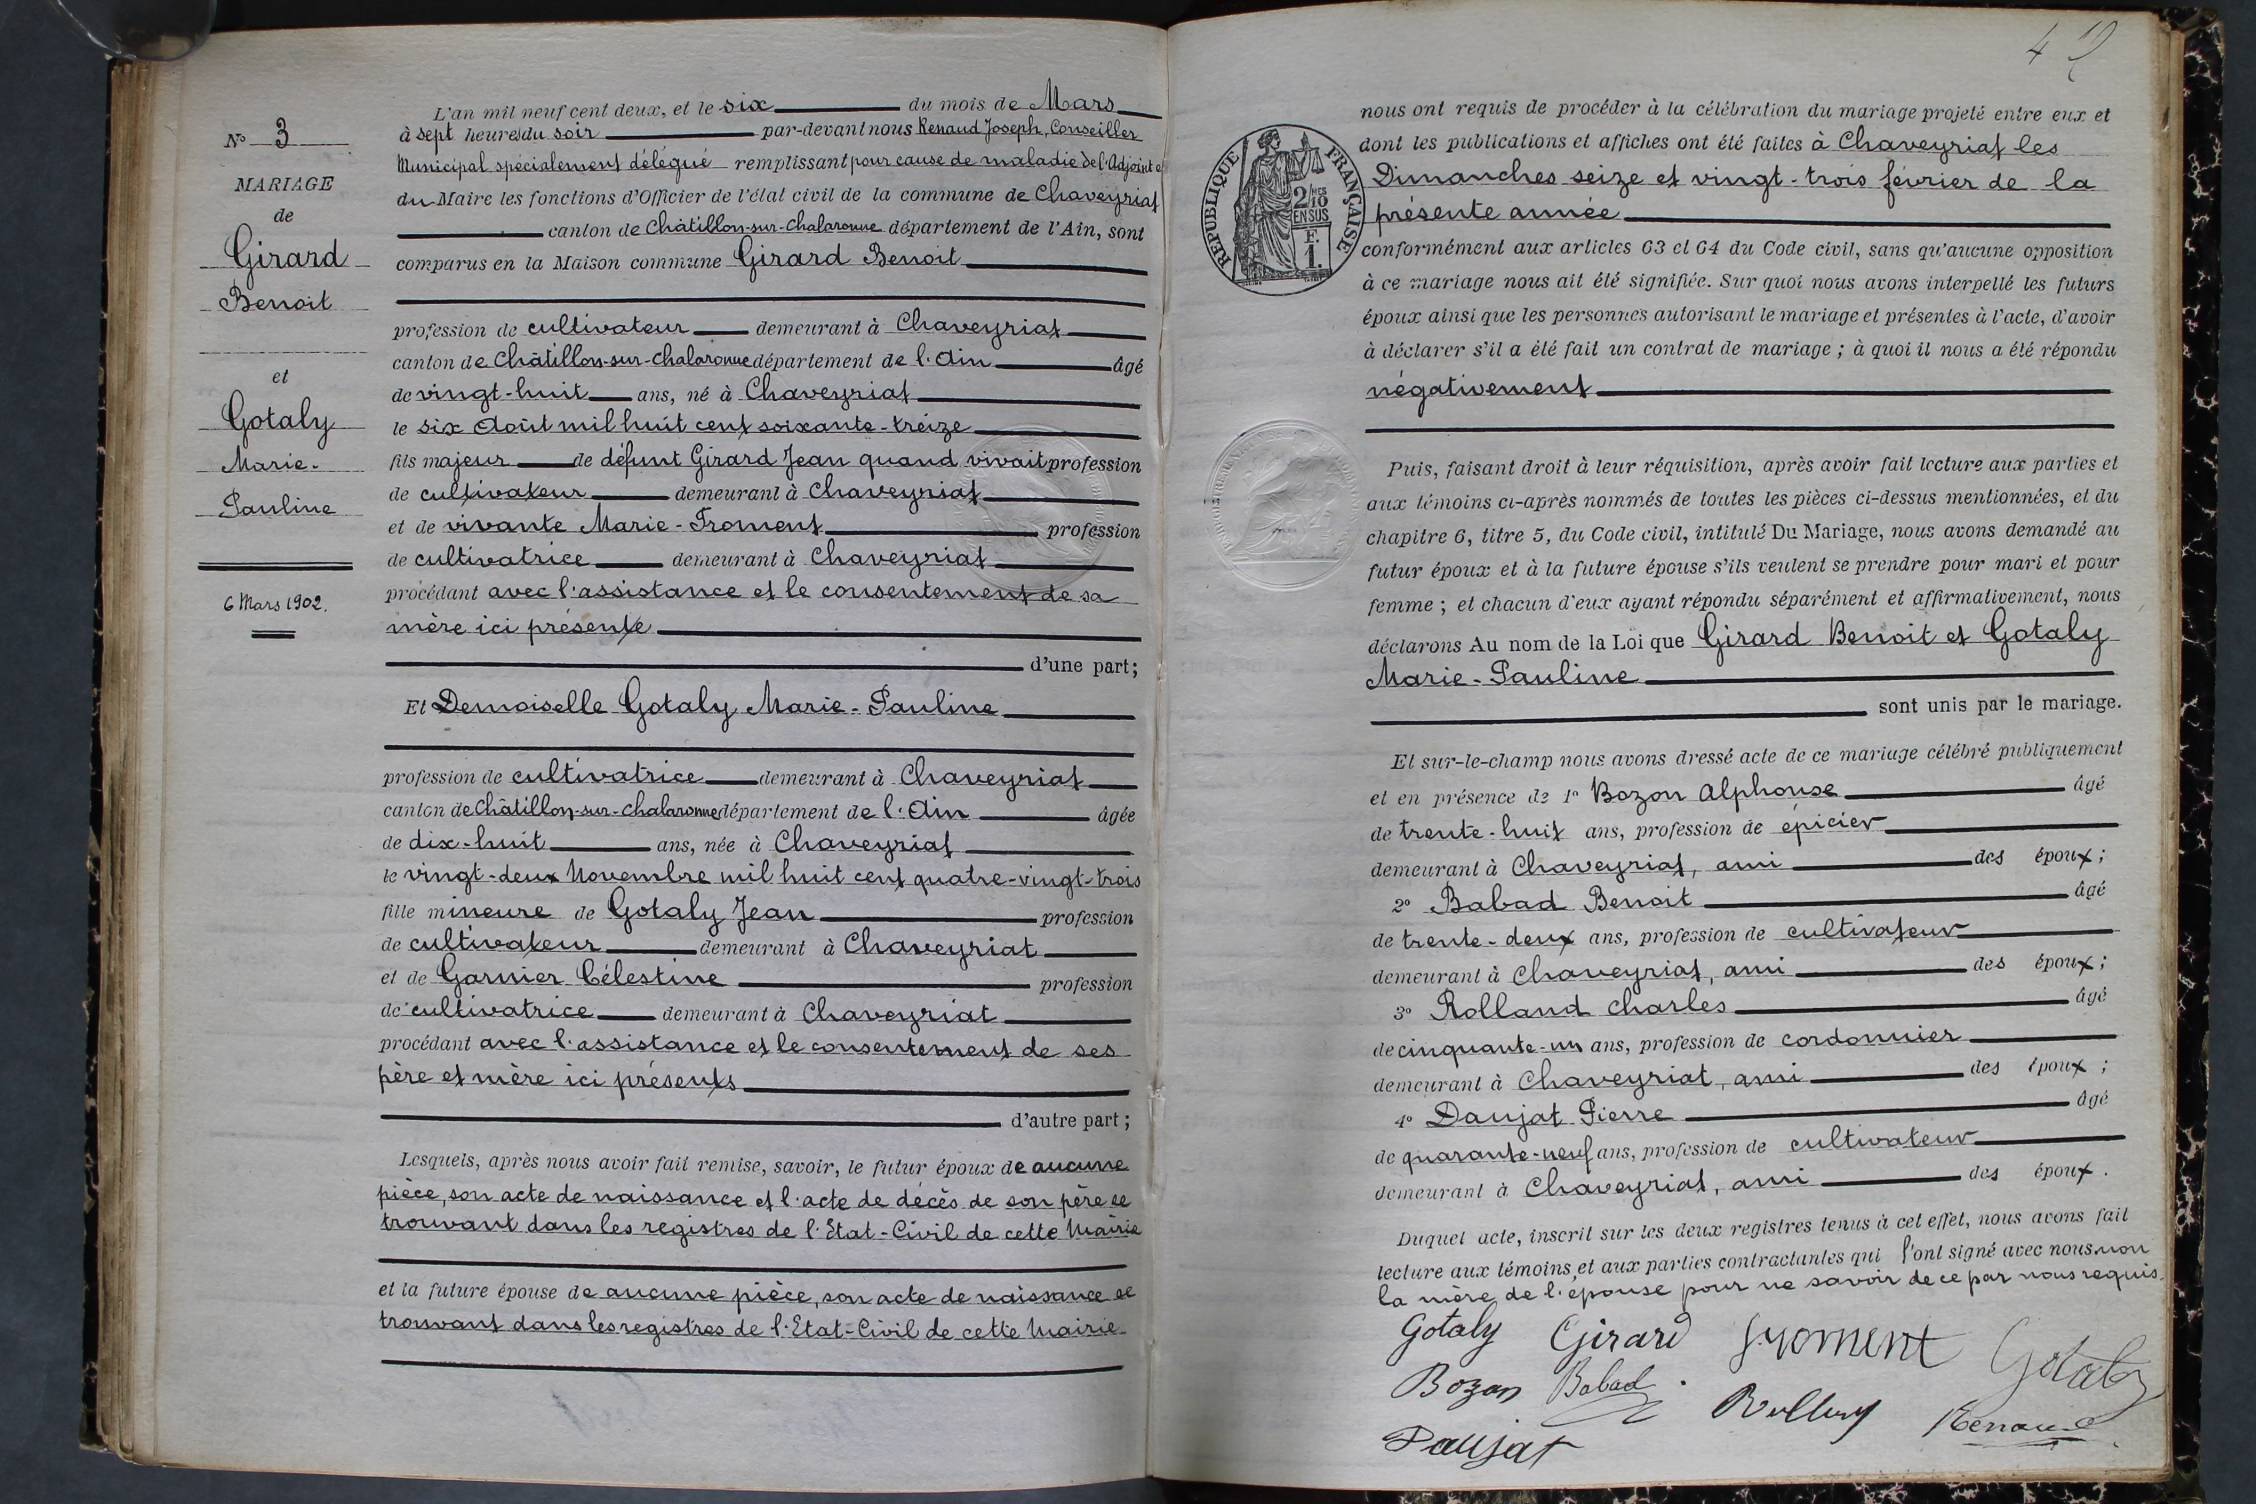 N° 3
MARIAGE
de
Girard
Benoit
et
Gotaly
Marie-
Pauline
6 Mars 1902.
L'an mil neuf cent deux, et le six du mois de Mars
à sept heures du soir par-devant nous Renaud Joseph, Conseiller
Municipal spécialement délégué remplissant pour cause de maladie de l'Adjoint et
du Maire les fonctions d'Officier de l'état civil de la commune de Chaveyriat
canton de Châtillon-sur-Chalaronne département de l'Ain, sont
comparus en la Maison commune Girard Benoit
profession de cultivateur demeurant à Chaveyriat
canton de Châtillon-sur-Chalaronne département de l'Ain âgé
de vingt-huit ans, né à Chaveyriat
le six Août mil huit cent soixante-treize
fils majeur de défunt Girard Jean quand vivait profession
de cultivateur demeurant à Chaveyriat
et de vivante Marie-Froment profession
de cultivatrice demeurant à Chaveyriat
procédant avec l'assistance et le consentement de sa
mère ici présente
d'une part;
Et Demoiselle Gotaly Marie-Pauline
profession de cultivatrice demeurant à Chaveyriat
canton de Châtillon-sur-Chalaronne département de l'Ain âgée
de dix-huit ans, née à Chaveyriat
le vingt-deux Novembre mil huit cent quatre-vingt-trois
fille mineure de Gotaly Jean profession
de cultivateur demeurant à Chaveyriat
et de Garnier Célestine profession
de cultivatrice demeurant à Chaveyriat
procédant avec l'assistance et le consentement de ses
père et mère ici présents
d'autre part;
Lesquels, après nous avoir fait remise, savoir, le futur époux de aucune
pièce, son acte de naissance et l'acte de décès de son père se
trouvant dans les registres de l'Etat-Civil de cette Mairie
et la future épouse de aucune pièce, son acte de naissance se
trouvant dans les registres de l'Etat-Civil de cette Mairie
42
RÉPUBLIQUE FRANÇAISE
2/10
EN SUS
F.
1.
nous ont requis de procéder à la célébration du mariage projeté entre eux et
dont les publications et affiches ont été faites à Chaveyriat les
Dimanches seize et vingt-trois février de la
présente année
conformément aux articles 63 et 64 du Code civil, sans qu'aucune opposition
à ce mariage nous ait été signifiée. Sur quoi nous avons interpellé les futurs
époux ainsi que les personnes autorisant le mariage et présentes à l'acte, d'avoir
à déclarer s'il a été fait un contrat de mariage; à quoi il nous a été répondu
négativement
Puis, faisant droit à leur réquisition, après avoir fait lecture aux parties et
aux témoins ci-après nommés de toutes les pièces ci-dessus mentionnées, et du
chapitre 6, titre 5, du Code civil, intitulé Du Mariage, nous avons demandé au
futur époux et à la future épouse s'ils veulent se prendre pour mari et pour
femme; et chacun d'eux ayant répondu séparément et affirmativement, nous
déclarons Au nom de la Loi que Girard Benoit et Gotaly
Marie-Pauline
sont unis par le mariage.
Et sur-le-champ nous avons dressé acte de ce mariage célébré publiquement
et en présence de 1° Bozon Alphonse âgé
de trente-huit ans, profession de épicier
demeurant à Chaveyriat, ami des époux;
2° Babad Benoit âgé
de trente-deux ans, profession de cultivateur
demeurant à Chaveyriat, ami des époux;
3° Rolland Charles âgé
de cinquante-un ans, profession de cordonnier
demeurant à Chaveyriat, ami des époux;
4° Daujat Pierre âgé
de quarante-neuf ans, profession de cultivateur
demeurant à Chaveyriat, ami des époux.
Duquel acte, inscrit sur les deux registres tenus à cet effet, nous avons fait
lecture aux témoins, et aux parties contractantes qui l'ont signé avec nous non
la mère de l'épouse pour ne savoir de ce par nous requis.
Gotaly Girard froment Gotaly
Bozon Babad Renaud
Daujat